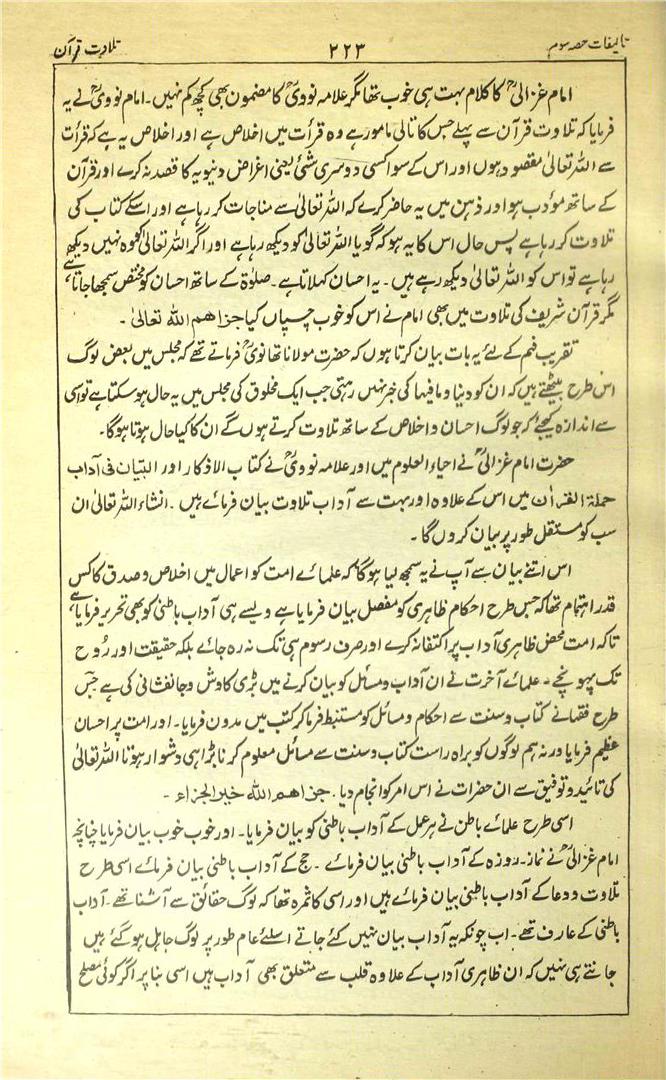 تالیفات حصہ سوم ۲۲۳ تلاوت قرآن
امام غزالیؒ کا کلام بہت ہی خوب تھا مگر علامہ نوویؒ کا مضمون بھی کچھ کم نہیں۔ امام نوویؒ نے یہ
فرمایا کہ تلاوت قرآن سے پہلے جس کا تالی مامور ہے وہ قرأت میں اخلاص ہے اور اخلاص یہ ہے کہ قرأت
سے اللہ تعالیٰ مقصود ہوں اور اس کے سوا کسی دوسری شئ یعنی اغراض دنیویہ کا قصد نہ کرے اور قرآن
کے ساتھ مؤدب ہو اور ذہن میں یہ حاضر کرے کہ اللہ تعالیٰ سے مناجات کر رہا ہے اور اسکے کتاب کی
تلاوت کر رہا ہے پس حال اس کا یہ ہو کہ گویا اللہ تعالیٰ کو دیکھ رہا ہے اور اگر اللہ تعالیٰ کو وہ نہیں دیکھ
رہا ہے تو اس کو اللہ تعالیٰ دیکھ رہے ہیں۔ یہ احسان کہلاتا ہے۔ صلوٰۃ کے ساتھ احسان کو مختص سمجھا جاتا ہے
مگر قرآن شریف کی تلاوت میں بھی امام نے اس کو خوب چسپاں کیا جزاھم اللہ تعالیٰ۔
تقریب فہم کے لئے یہ بات بیان کرتا ہوں کہ حضرت مولانا تھانویؒ فرماتے تھے کہ مجلس میں بعض لوگ
اس طرح بیٹھتے ہیں کہ ان کو دنیا و مافیہا کی خبر نہیں رہتی جب ایک مخلوق کی مجلس میں یہ حال ہو سکتا ہے تو اسی
سے اندازہ کیجئے کہ جو لوگ احسان و اخلاص کے ساتھ تلاوت کرتے ہوں گے ان کا کیا حال ہوتا ہوگا۔
حضرت امام غزالیؒ نے احیاء العلوم میں اور علامہ نوویؒ نے کتاب الاذکار اور التبیان فی آداب
حملۃ القرآن میں اس کے علاوہ اور بہت سے آداب تلاوت بیان فرمائے ہیں۔ انشاء اللہ تعالیٰ ان
سب کو مستقل طور پر بیان کروں گا۔
اس اتنے بیان سے آپ نے یہ سمجھ لیا ہوگا کہ علمائے امت کو اعمال میں اخلاص و صدق کا کس
قدر اہتمام تھا کہ جس طرح احکام ظاہری کو مفصل بیان فرمایا ہے ویسے ہی آداب باطنی کو بھی تحریر فرمایا ہے
تاکہ امت محض ظاہری آداب پر اکتفا نہ کرے اور صرف رسوم ہی تک نہ رہ جائے بلکہ حقیقت اور روح
تک پہونچے۔ علمائے آخرت نے ان آداب و مسائل کو بیان کرنے میں بڑی کاوش و جانفشانی کی ہے جس
طرح فقہا نے کتاب و سنت سے احکام و مسائل کو مستنبط فرما کر کتب میں مدون فرمایا۔ اور امت پر احسان
عظیم فرمایا ورنہ ہم لوگوں کو براہ راست کتاب و سنت سے مسائل معلوم کرنا بڑا ہی دشوار ہوتا اللہ تعالیٰ
کی تائید و توفیق سے ان حضرات نے اس امر کو انجام دیا۔ جزاھم اللہ خیر الجزاء۔
اسی طرح علمائے باطن نے ہر عمل کے آداب باطنی کو بیان فرمایا۔ اور خوب خوب بیان فرمایا چنانچہ
امام غزالیؒ نے نماز۔ روزہ کے آداب باطنی بیان فرمائے۔ حج کے آداب باطنی بیان فرمائے اسی طرح
تلاوت و دعا کے آداب باطنی بیان فرمائے ہیں اور اسی کا ثمرہ تھا کہ لوگ حقائق سے آشنا تھے۔ آداب
باطنی کے عارف تھے۔ اب چونکہ یہ آداب بیان نہیں کئے جاتے اسلئے عام طور پر لوگ جاہل ہو گئے ہیں
جانتے ہی نہیں کہ ان ظاہری آداب کے علاوہ قلب سے متعلق بھی آداب ہیں اسی بنا پر اگر کوئی مصلح